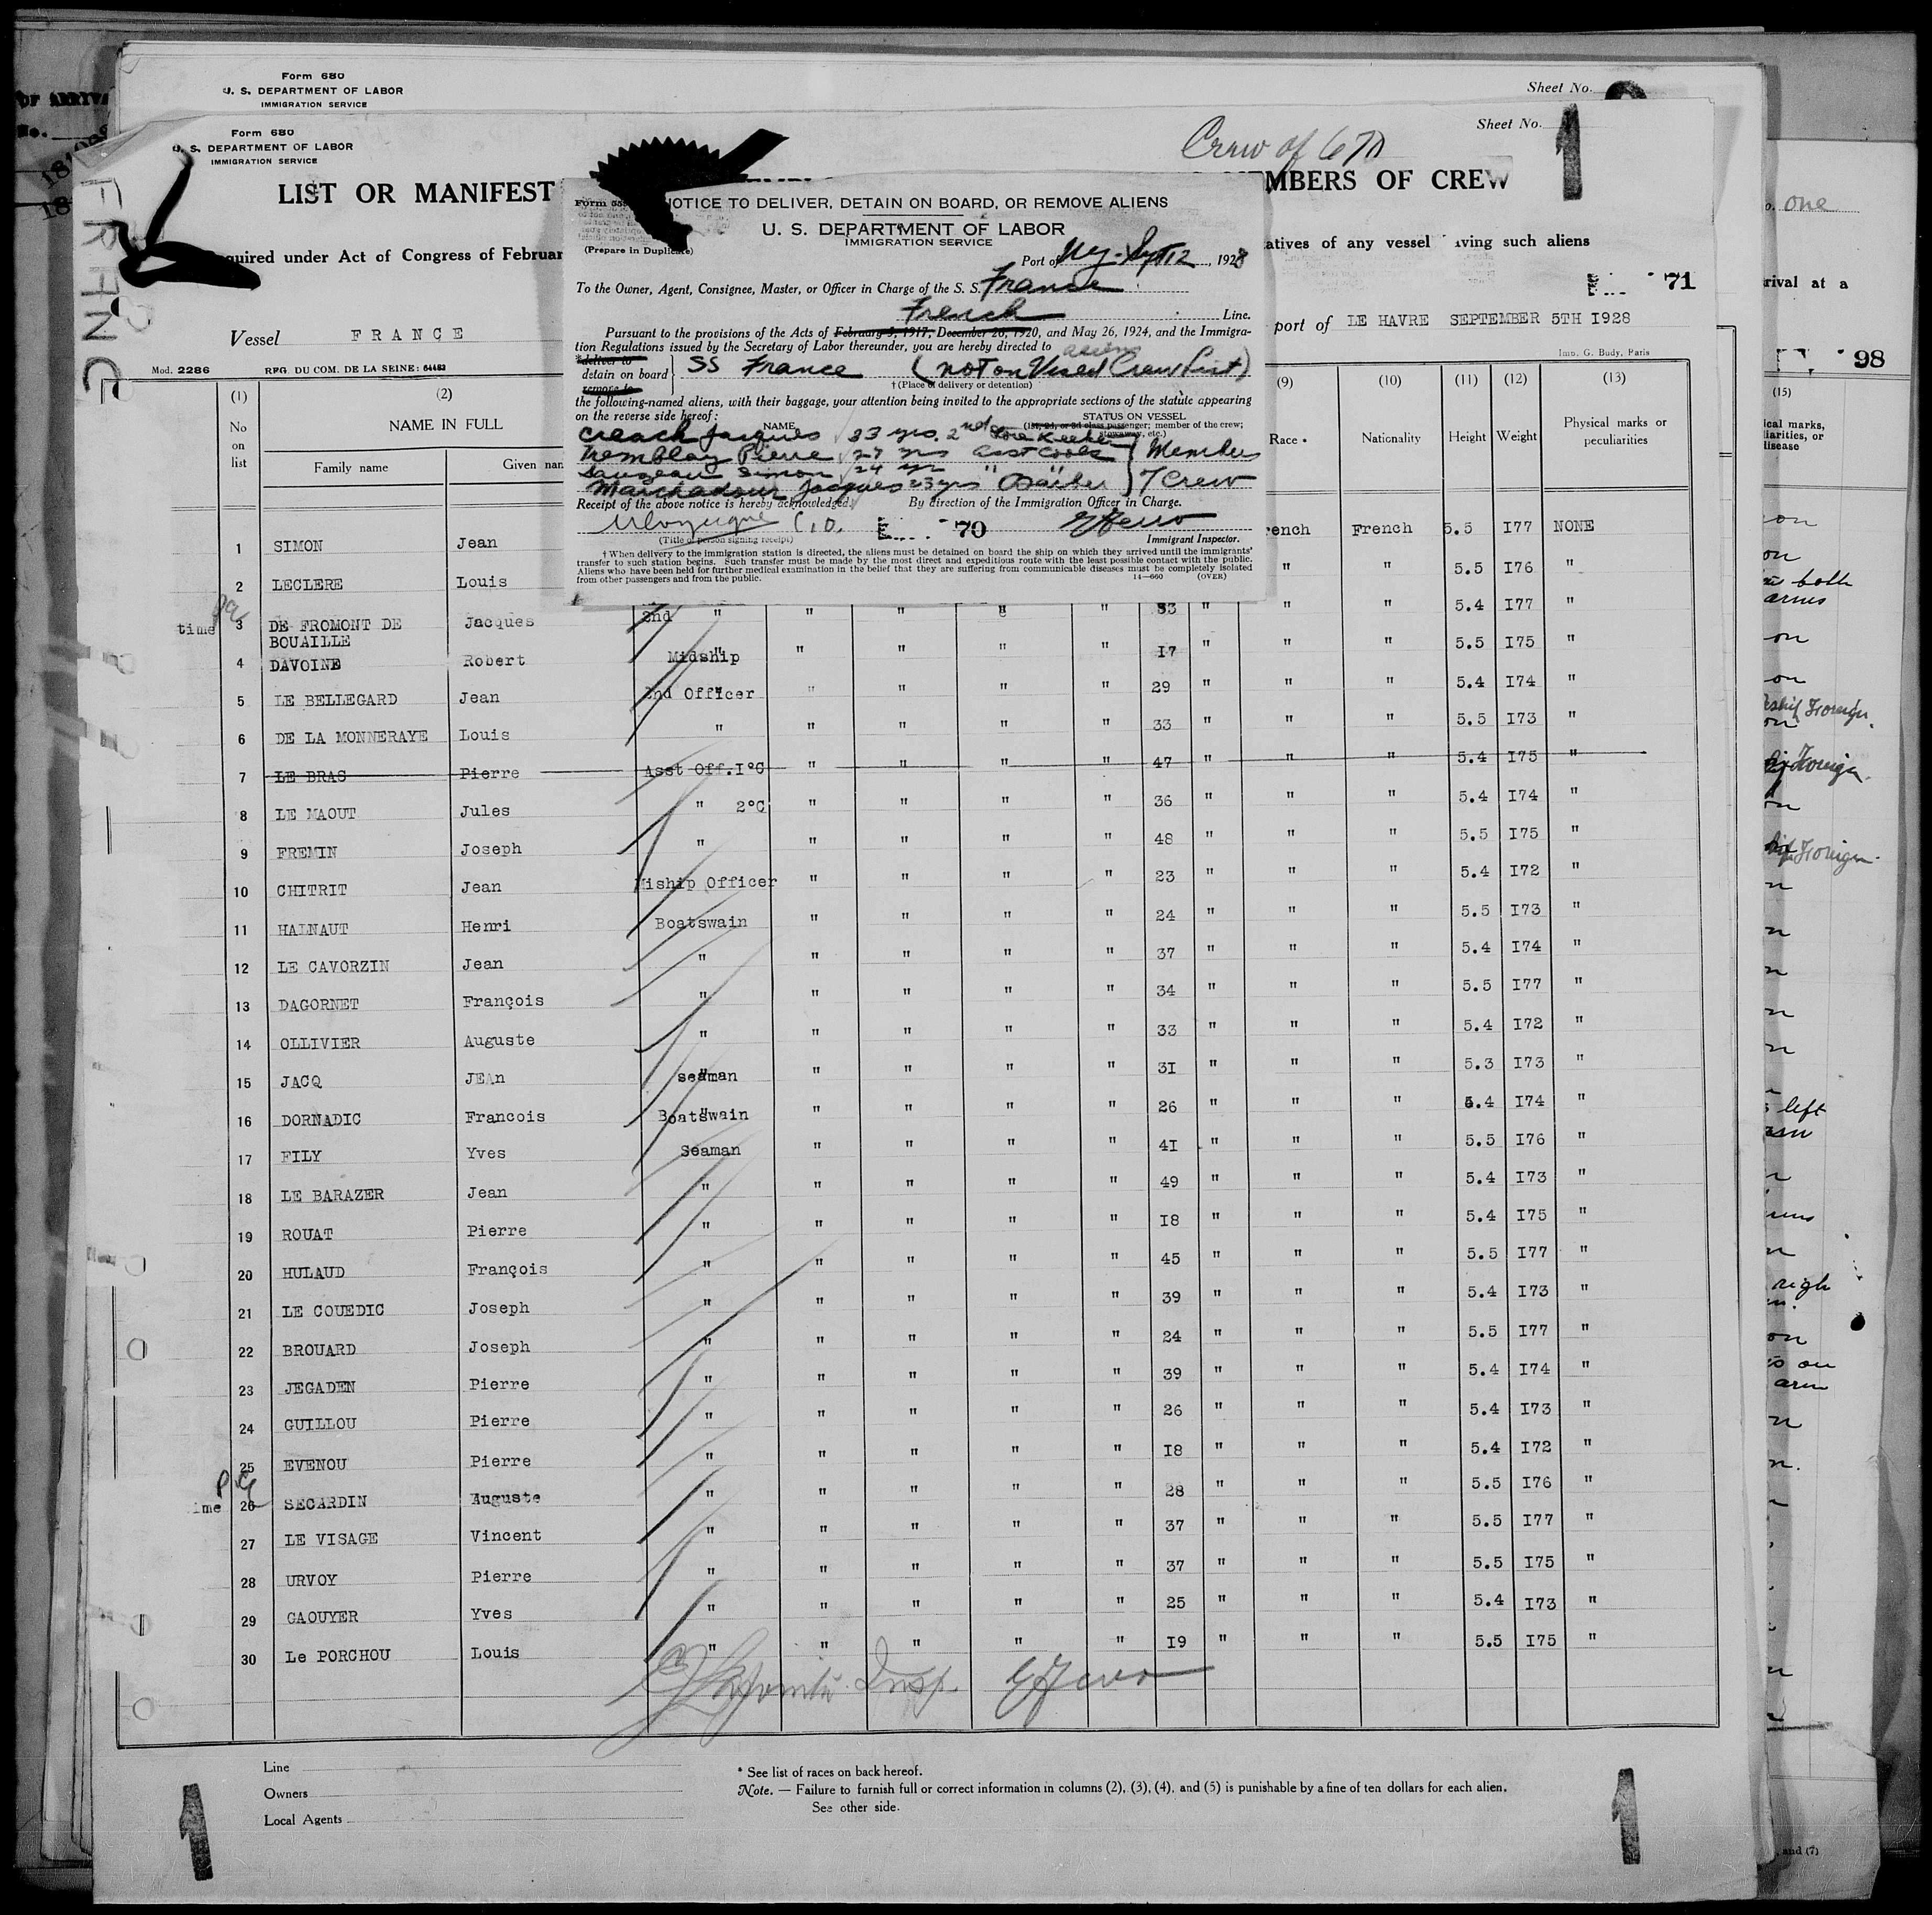 Form 680
U. S. DEPARTMENT OF LABOR
IMMIGRATION SERVICE
Sheet No.
Form 680
U. S. DEPARTMENT OF LABOR
IMMIGRATION SERVICE
Sheet No. 1
Crew of 670
LIST OR MANIFEST
MEMBERS OF CREW
quired under Act of Congress of Februar
atives of any vessel
ving such aliens
71
Vessel FRANCE
port of LE HAVRE SEPTEMBER 5TH I928
Mod. 2286 REG. DU COM. DE LA SEINE: 64483
Imp. G. Budy, Paris
NOTICE TO DELIVER, DETAIN ON BOARD, OR REMOVE ALIENS
U. S. DEPARTMENT OF LABOR
IMMIGRATION SERVICE
(Prepare in Duplicate)
Port of Ny. Sept 12, 1928
To the Owner, Agent, Consignee, Master, or Officer in Charge of the S. S. France
French Line.
Pursuant to the provisions of the Acts of February 5, 1917, December 26, 1920, and May 26, 1924, and the Immigra-
tion Regulations issued by the Secretary of Labor thereunder, you are hereby directed to
*deliver to
detain on board
remove to
SS France (not on Visaed aliens Crew List)
† (Place of delivery or detention)
the following-named aliens, with their baggage, your attention being invited to the appropriate sections of the statute appearing
on the reverse side hereof:
NAME
STATUS ON VESSEL
(1st, 2d, or 3d class passenger; member of the crew;
stowaway, etc.)
Creach Jacques 33 yrs. 2nd Store Keeper
Tremblay Pierre 27 yrs asst Cook Member
Sauzeau Simon 24 yr " "
Marchadour Jacques 23 yrs " Barber Crew
Receipt of the above notice is hereby acknowledged.
By direction of the Immigration Officer in Charge.
70
(Title of person signing receipt)
Immigrant Inspector.
† When delivery to the immigration station is directed, the aliens must be detained on board the ship on which they arrived until the immigrants'
transfer to such station begins. Such transfer must be made by the most direct and expeditious route with the least possible contact with the public.
Aliens who have been held for further medical examination in the belief that they are suffering from communicable diseases must be completely isolated
from other passengers and from the public.
14—660 (OVER)
(1) (2) (9) (10) (11) (12) (13)
No on list
NAME IN FULL
Family name
Given nam
Race *
Nationality
Height
Weight
Physical marks or peculiarities
1 SIMON Jean rench French 5.5 I77 NONE
2 LECLERE Louis " " 5.5 I76 "
3 DE FROMONT DE BOUAILLE Jacques 2nd " " " " " 33 " " " 5.4 I77 "
4 DAVOINE Robert Midship " " " " I7 " " " 5.5 I75 "
5 LE BELLEGARD Jean 2nd Officer " " " " 29 " " " 5.4 I74 "
6 DE LA MONNERAYE Louis " " " " " 33 " " " 5.5 I73 "
7 LE BRAS Pierre Asst Off.I°C " " " " 47 " " " 5.4 I75 "
8 LE MAOUT Jules " 2°C " " " " 36 " " " 5.4 I74 "
9 FREMIN Joseph " " " " " 48 " " " 5.5 I75 "
10 CHITRIT Jean Miship Officer " " " " 23 " " " 5.4 I72 "
11 HAINAUT Henri Boatswain " " " " 24 " " " 5.5 I73 "
12 LE CAVORZIN Jean " " " " " 37 " " " 5.4 I74 "
13 DAGORNET François " " " " " 34 " " " 5.5 I77 "
14 OLLIVIER Auguste " " " " " 33 " " " 5.4 I72 "
15 JACQ JEAn seaman " " " " 3I " " " 5.3 I73 "
16 DORNADIC Francois Boatswain " " " " 26 " " " 5.4 I74 "
17 FILY Yves Seaman " " " " 4I " " " 5.5 I76 "
18 LE BARAZER Jean " " " " " 49 " " " 5.4 I73 "
19 ROUAT Pierre " " " " " I8 " " " 5.4 I75 "
20 HULAUD François " " " " " 45 " " " 5.5 I77 "
21 LE COUEDIC Joseph " " " " " 39 " " " 5.4 I73 "
22 BROUARD Joseph " " " " " 24 " " " 5.5 I77 "
23 JEGADEN Pierre " " " " " 39 " " " 5.4 I74 "
24 GUILLOU Pierre " " " " " 26 " " " 5.4 I73 "
25 EVENOU Pierre " " " " " I8 " " " 5.4 I72 "
26 SECARDIN Auguste " " " " " 28 " " " 5.5 I76 "
27 LE VISAGE Vincent " " " " " 37 " " " 5.5 I77 "
28 URVOY Pierre " " " " " 37 " " " 5.5 I75 "
29 CAOUYER Yves " " " " " 25 " " " 5.4 I73 "
30 Le PORCHOU Louis " " " " " I9 " " " 5.5 I75 "
Insp.
Line
Owners
Local Agents
* See list of races on back hereof.
Note. — Failure to furnish full or correct information in columns (2), (3), (4), and (5) is punishable by a fine of ten dollars for each alien.
See other side.
1
1
FRANCE
one
rival at a
98
(15)
, and (7)